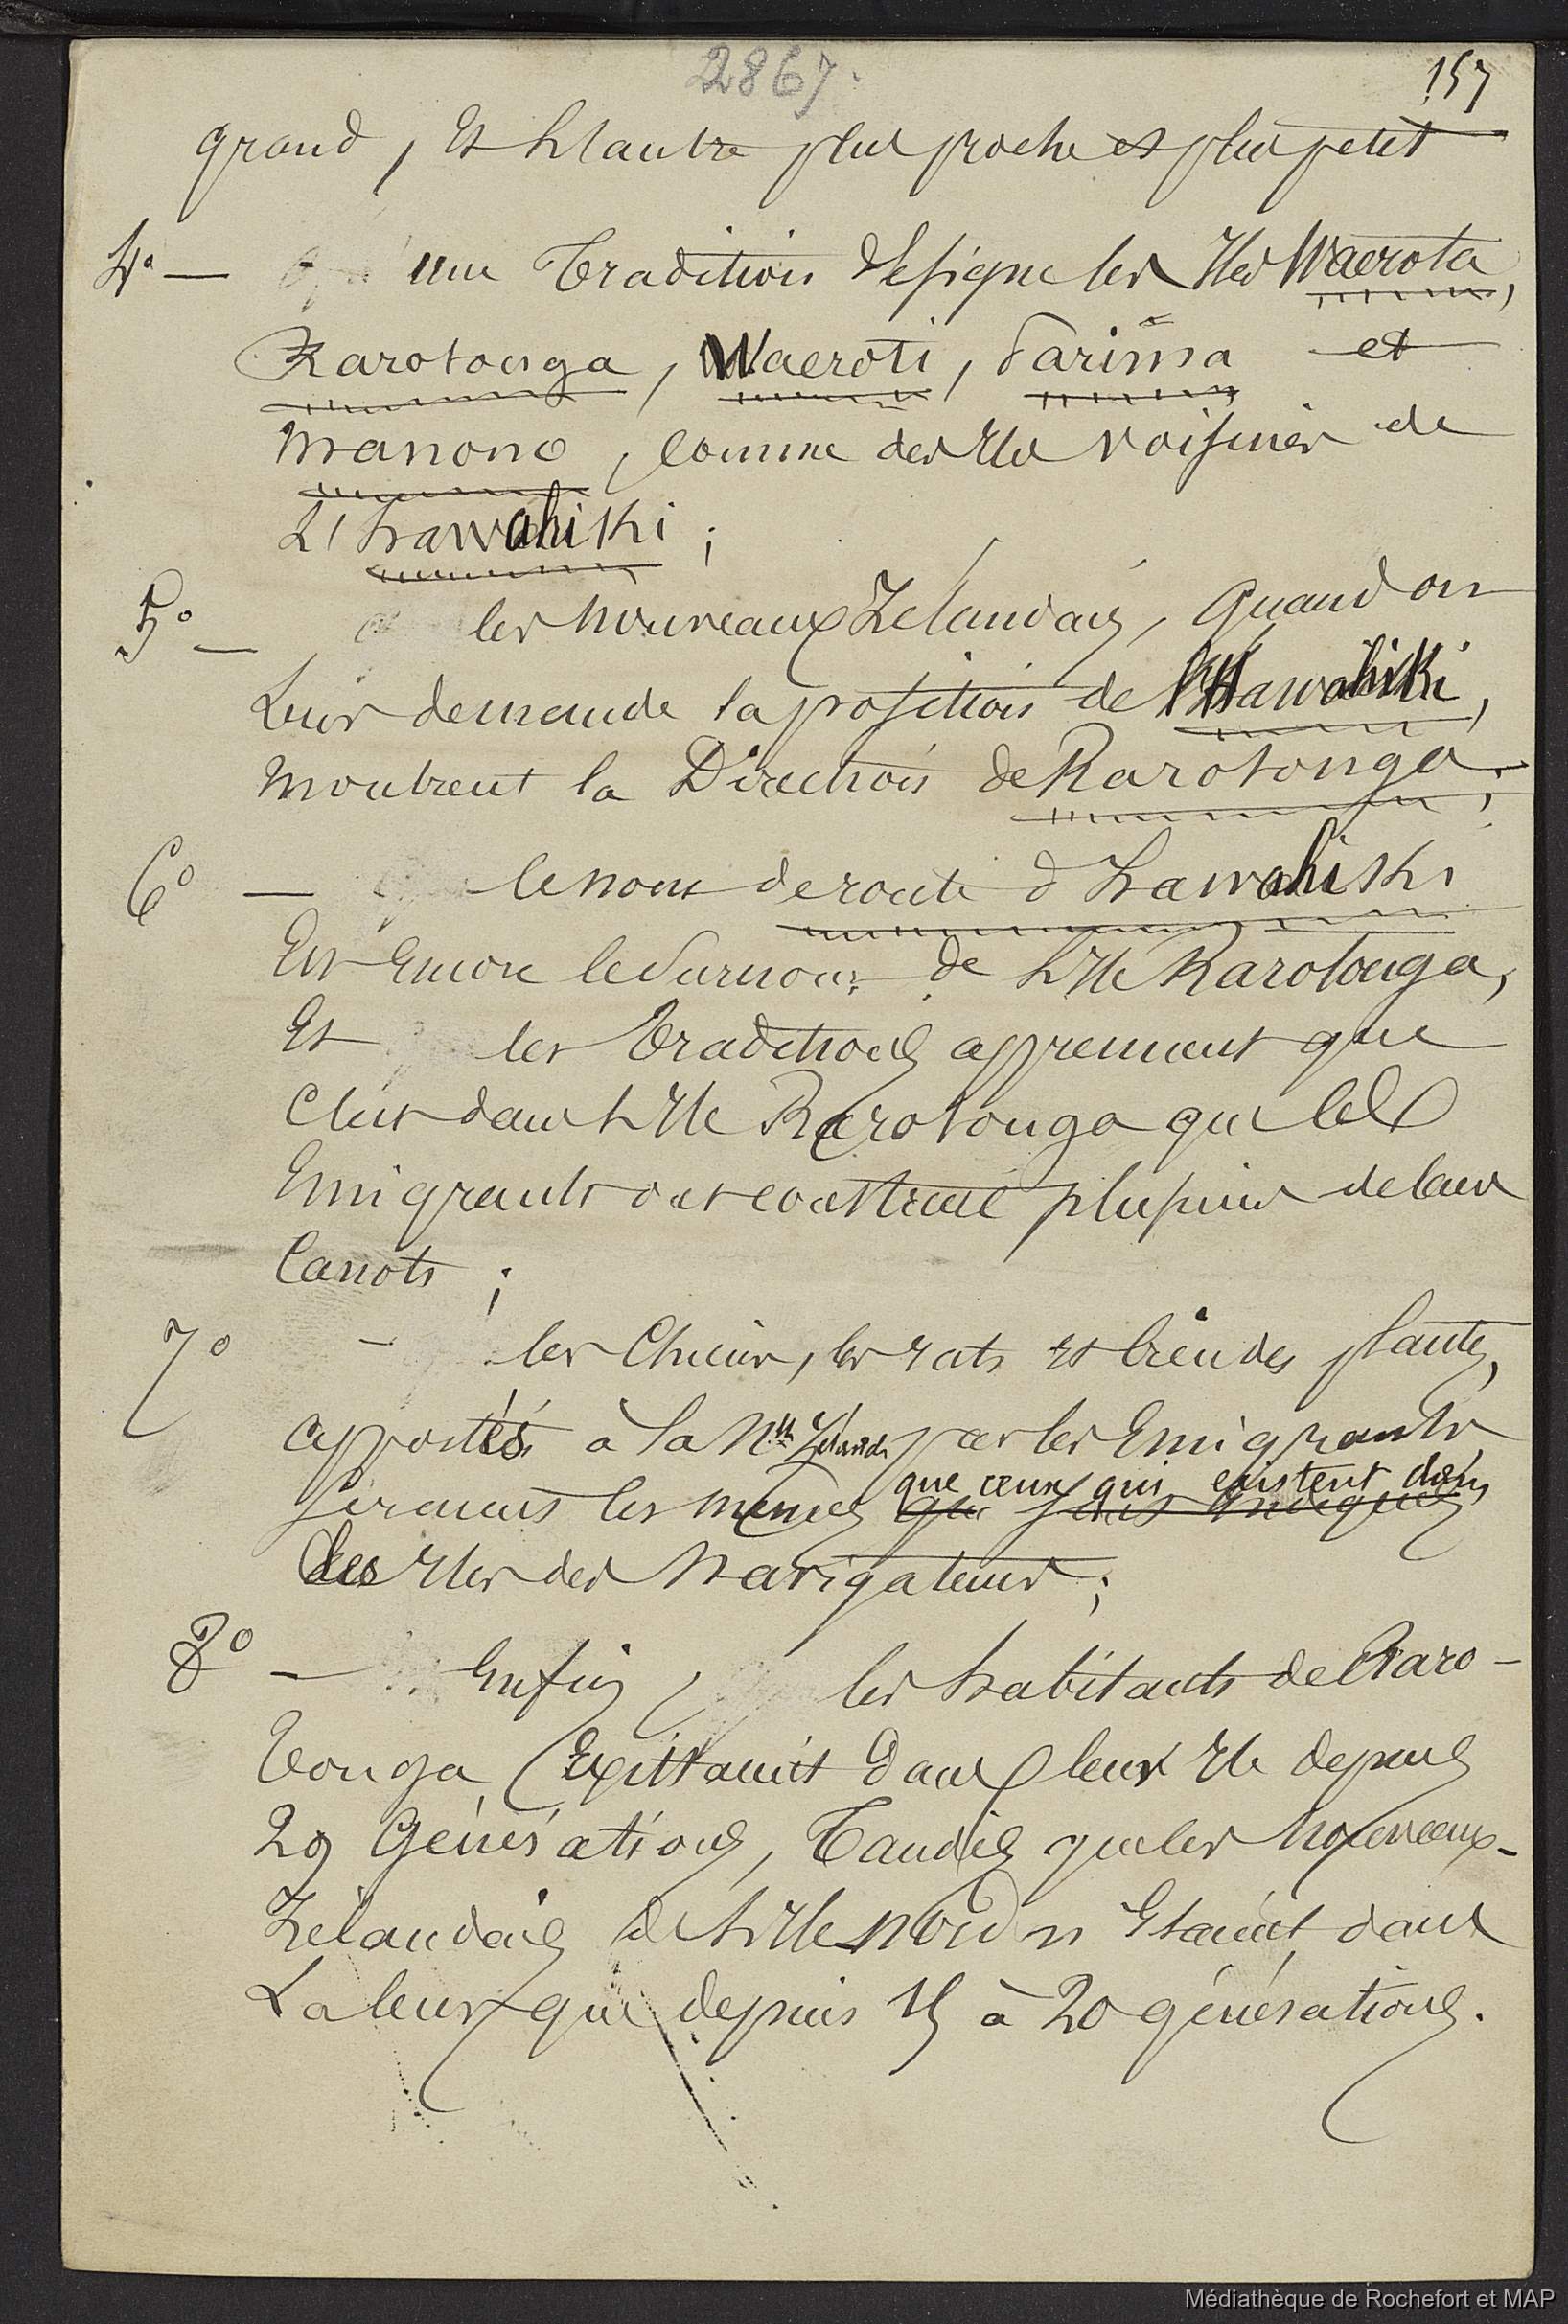 2867.
157
grand, Et L'autre plus proche et plus petit
4° — une Tradition désigne les Iles Waerota,
Rarotonga, Waeroti, Parima et
Manono, Comme des Iles voisines de
L'hawahiki ;
5° — les nouveaux Zelandais, quand on
Leur demande la position de l'Hawahiki,
Montrent la Direction de Rarotonga ;
6° — le nom de route d'hawahiki
Est Encore le Surnom de L'Ile Rarotonga,
Et les Traditions apprennent que
C'est dans L'Ile Rarotonga que les
Emigrants ont construit plusieurs de leurs
Canots ;
7° — les Chiens, les rats et bien des plantes,
apportés à la Nlle Zélande par les Emigrants
que ceux qui existent dans
Seraient les mêmes que sont indiqués
les Iles des Navigateurs ;
8° — Enfin, les habitants de Raro-
tonga, Existaient dans leur Ile depuis
29 Générations, Tandis que les Nouveaux-
Zélandais de L'Ile Nord n'Etaient dans
La leur que depuis 15 à 20 générations.
Médiathèque de Rochefort et MAP